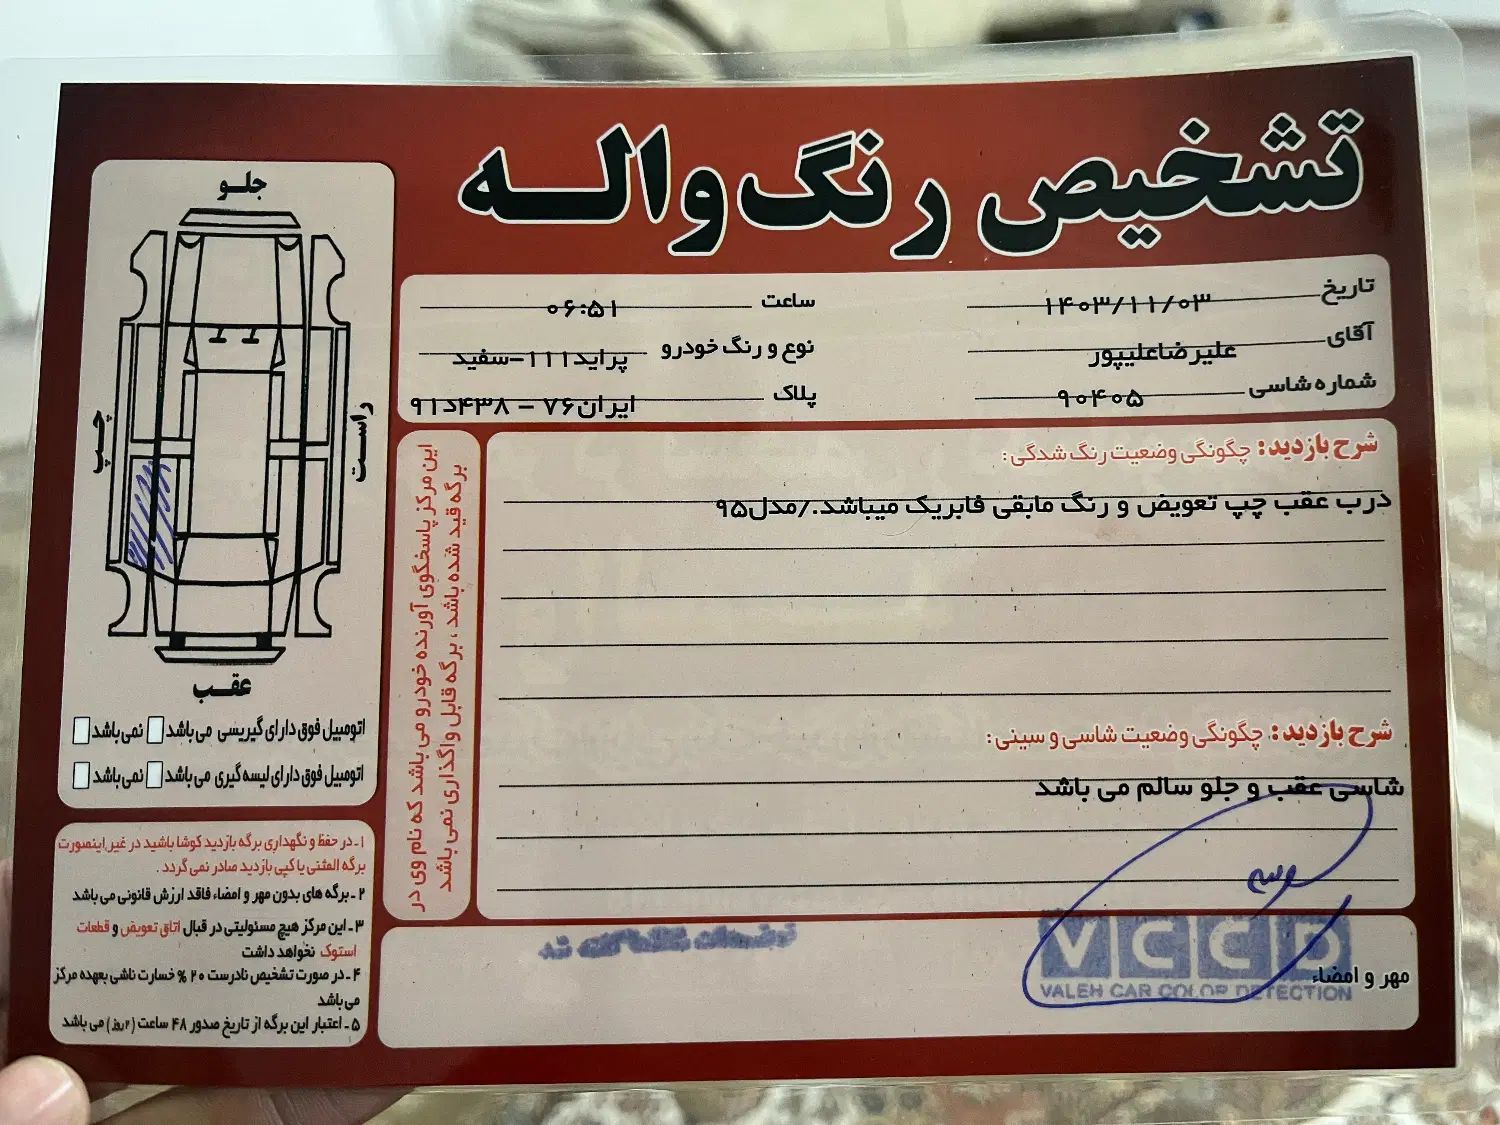 تشخیص رنگ واله
تاریخ ۱۴۰۳/۱۱/۰۳
ساعت ۰۶:۵۱
آقای علیرضاعلیپور
نوع و رنگ خودرو پراید۱۱۱-سفید
شماره شاسی ۹۰۴۰۵
پلاک ایران۷۶ - ۴۳۸د۹۱
شرح بازدید: چگونگی وضعیت رنگ شدگی:
درب عقب چپ تعویض و رنگ مابقی فابریک میباشد./مدل۹۵
شرح بازدید: چگونگی وضعیت شاسی و سینی:
شاسی عقب و جلو سالم می باشد
مهر و امضاء
VCCD
VALEH CAR COLOR DETECTION
این مرکز پاسخگوی آورنده خودرو می باشد که نام وی در
برگه قید شده باشد ، برگه قابل واگذاری نمی باشد
جلو
چپ
راست
عقب
اتومبیل فوق دارای گیریسی می باشد نمی باشد
اتومبیل فوق دارای لیسه گیری می باشد نمی باشد
۱-در حفظ و نگهداری برگه بازدید کوشا باشید در غیر اینصورت
برگه المثنی یا کپی بازدید صادر نمی گردد.
۲-برگه های بدون مهر و امضاء فاقد ارزش قانونی می باشد
۳-این مرکز هیچ مسئولیتی در قبال اتاق تعویض و قطعات
استوک نخواهد داشت
۴-در صورت تشخیص نادرست ۲۰ % خسارت ناشی بعهده مرکز
می باشد
۵-اعتبار این برگه از تاریخ صدور ۴۸ ساعت (۲روز) می باشد